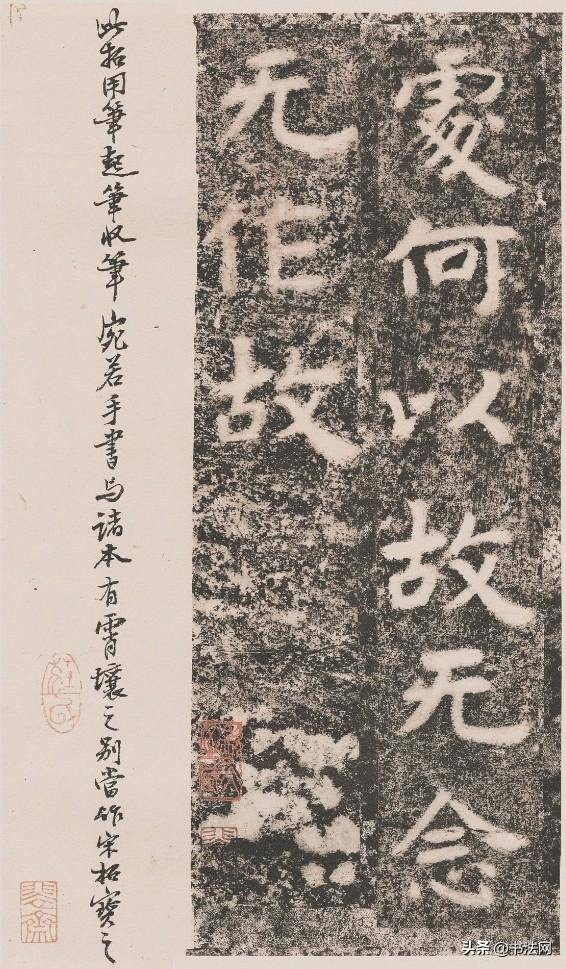 處何以故无念
无作故
此拓用筆起筆收筆宛若手書與諸本有霄壤之別當作宋拓寶之
裴齋
头条@书法网